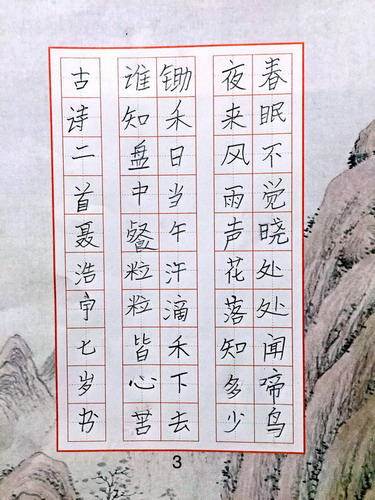 春眠不觉晓处处闻啼鸟
夜来风雨声花落知多少
锄禾日当午汗滴禾下去
谁知盘中餐粒粒皆心苦
古诗二首聂浩宇七岁书
3